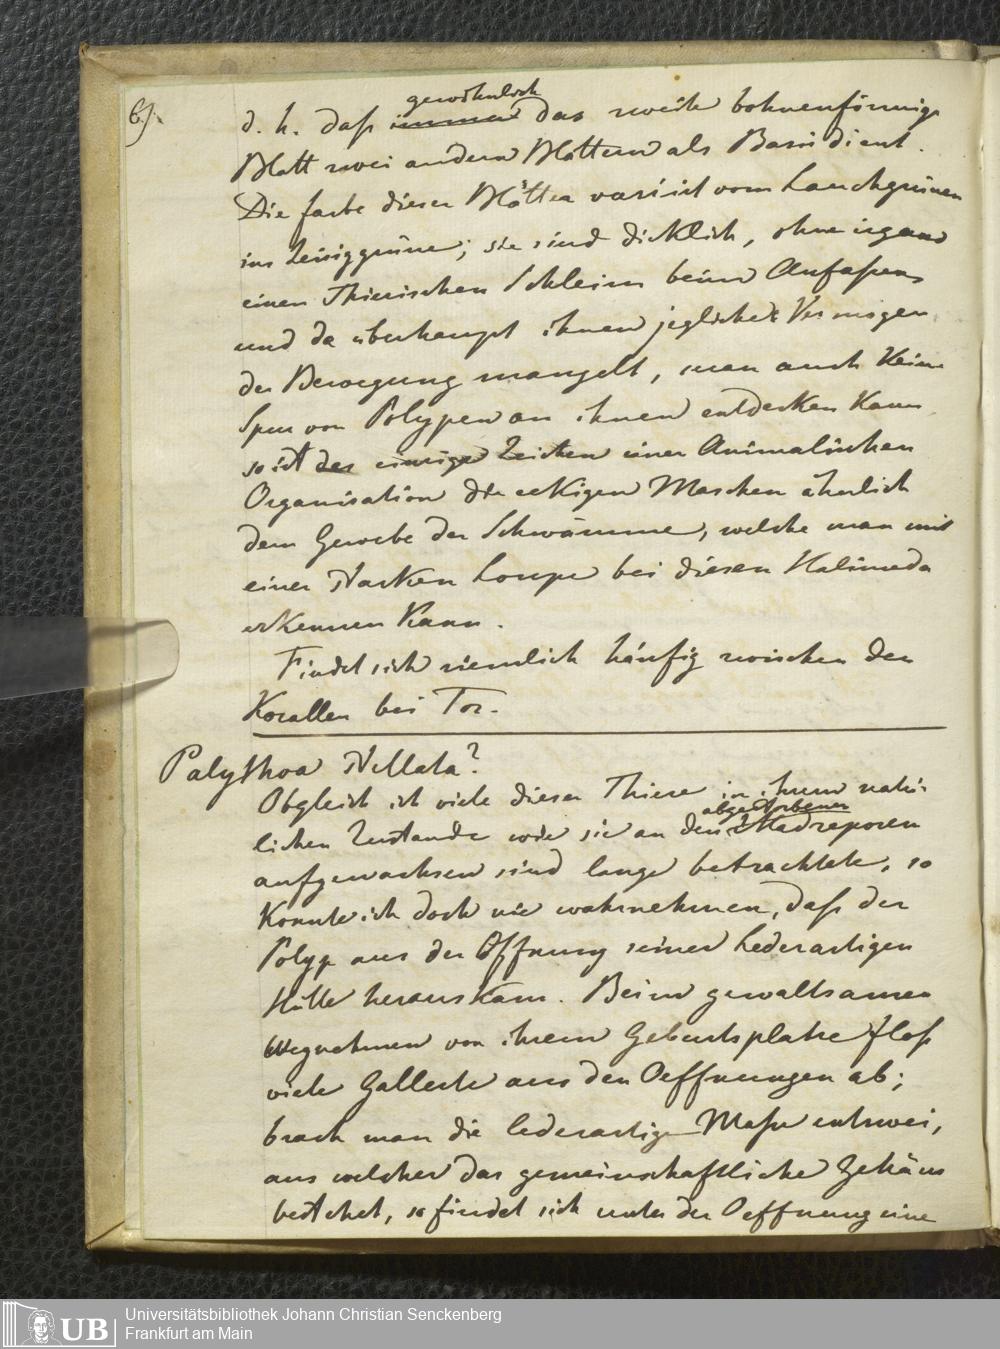 6).
gewöhnlich
d. h. daß immer das zweite bohnenförmige
Blatt zwei andern Blättern als Basis dient.
Die farbe dieser Blätter variirt vom Lauchgrünen
ins Zeisiggrüne; sie sind dicklich, ohne irgend
einen Thierischen Schleim beim Anfaßen
und da überhaupt ihnen jegliches Vermögen
der Bewegung mangelt, man auch keine
Spur von Polypen an ihnen entdecken kann
so ist das einzige Zeichen einer Animalischen
Organisation die eckigen Maschen ähnlich
dem Gewebe der Schwämme, welche man mit
einer starken Loupe bei diesen Halimeda
erkennen kann.
Findet sich ziemlich häufig zwischen den
Korallen bei Tor.
Palythoa stellata?
Obgleich ich viele dieser Thiere in ihrem natür-
abgestorbenen
lichen Zustande wie sie an den Madreporen
aufgewachsen sind lange betrachtete, so
konnte ich doch nie wahrnehmen, daß der
Polyp aus der Öffnung seiner Lederartigen
Hülle herauskam. Beim gewaltsamen
Wegnehmen von ihrem Geburtsplatze floß
viele Gallerte aus den Oeffnungen ab;
brach man die lederartige Maße entzwei,
aus welcher das gemeinschaftliche Gehäus
bestehet, so findet sich unter der Oeffnung eine
UB
Universitätsbibliothek Johann Christian Senckenberg
Frankfurt am Main